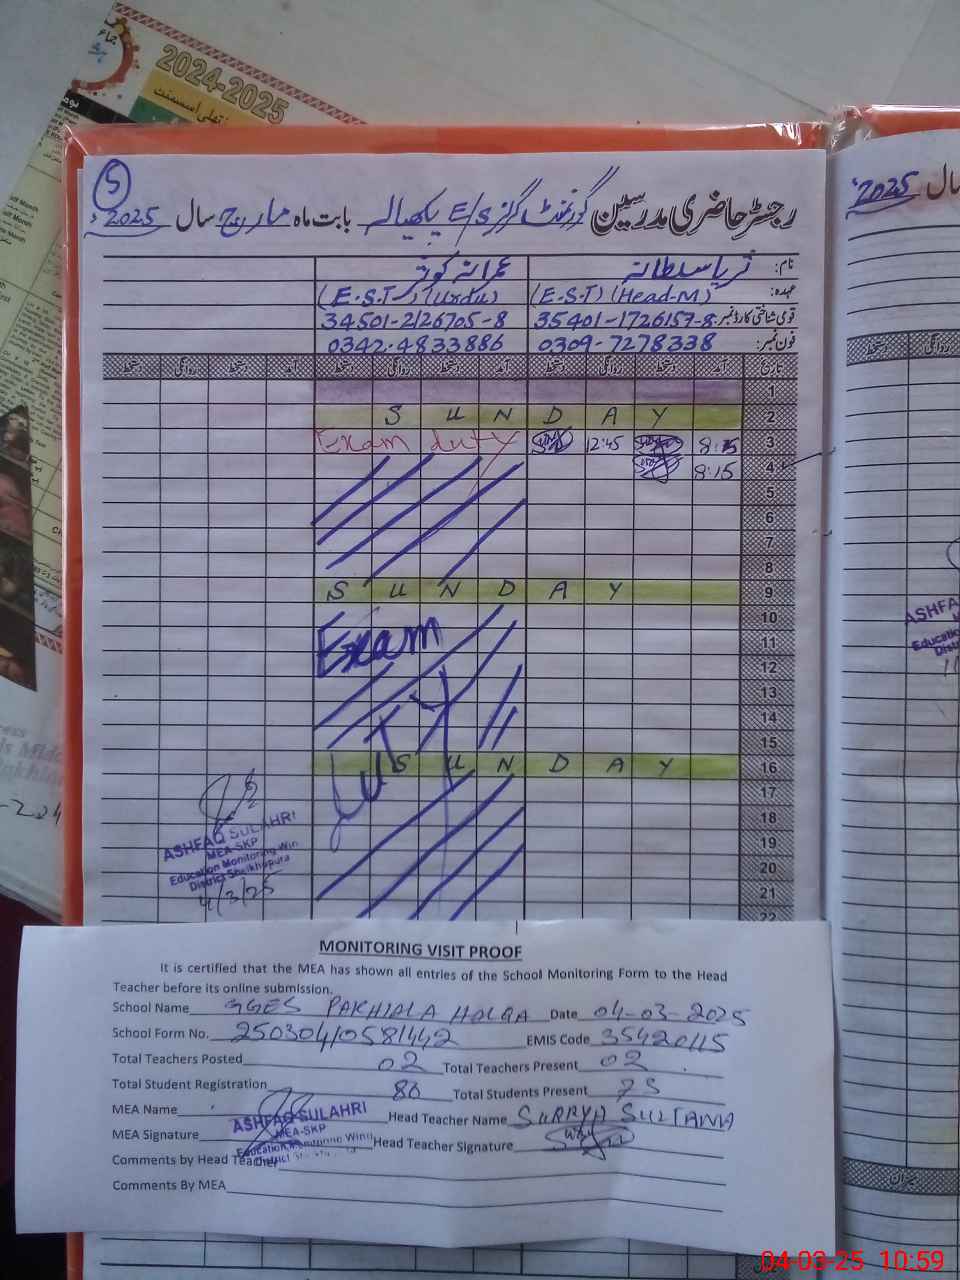 2024-2025
5
رجسٹر حاضری مدرسین گورنمنٹ گرلز E/S پکھیالہ بابت ماہ مارچ سال 2025ء
نام: ثریا سلطانہ عمرانہ کوثر
عہدہ: (E.S.T) (Head-M) (E.S.T) (Urdu)
قومی شناختی کارڈ نمبر 35401-1726157-8 34501-2126705-8
فون نمبر: 0309-7278338 0342-4833886
تاریخ آمد دستخط روانگی دستخط آمد دستخط روانگی دستخط آمد دستخط روانگی دستخط
1
2 SUNDAY
3 8:15 12:45 Exam duty
4 8:15
5
6
7
8
9 SUNDAY
10
11 Exam
12
13
14
15
16 SUNDAY
duty
17
18
19
20
21
22
ASHFAQ SULAHRI
MEA-SKP
Education Monitoring Win
District Sheikhupura
4/3/25
MONITORING VISIT PROOF
It is certified that the MEA has shown all entries of the School Monitoring Form to the Head
Teacher before its online submission.
School Name GGES PAKHIALA HOLQA Date 04-03-2025
School Form No. 25030410581442 EMIS Code 35420115
Total Teachers Posted 02 Total Teachers Present 02
Total Student Registration 86 Total Students Present 75
MEA Name Head Teacher Name SURRYA SULTANA
ASHFAQ SULAHRI
MEA-SKP
MEA Signature Head Teacher Signature
Comments by Head Teacher
Comments By MEA
2025 سال
میزان
04-03-25 10:59